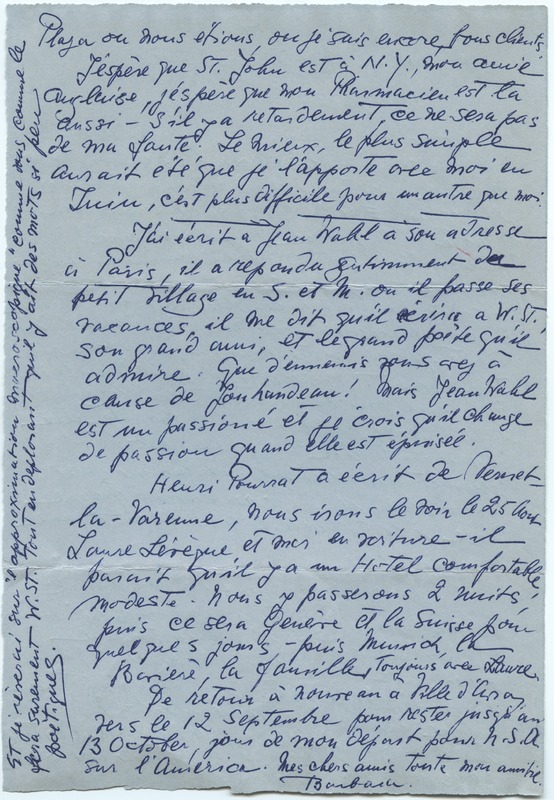 Plaza ou nous étions, ou je suis encore, bons clients
J'éspère que St. John est à N.Y., mon amie
anglaise, j'éspère que mon Pharmacien est là
aussi – s'il y a retardement, ce ne sera pas
de ma faute. Le mieux, le plus simple
aurait été que je l'apporte avec moi en
Juin, c'est plus difficile pour un autre que moi.
J'ai écrit à Jean Wahl à son adresse
à Paris, il a repondu gentimment de
petit village en S. et M. ou il passe ses
vacances, il me dit qu'il écrira a W. ST.
son grand ami, et le grand poête qu'il
admire. Que d'ennemis vous avez à
cause de Jouhandeau! mais Jean Wahl
est un passioné et je crois qu'il change
de passion quand elle est épuisée.
Henri Pourrat a écrit de Vernet-
la-Varenne, nous irons le voir le 25 Aout
Laure Lévèque et moi en voiture – il
parait qu'il y a un Hotel comfortable,
modeste. Nous y passerons 2 nuits,
puis ce sera Genève et la Suisse pour
quelques jours – puis Munich, la
Bavière, la famille, toujours avec Laure.
De retour à nouveau a Ville d'Avray
vers le 12 Septembre pour rester jusqu'au
13 October, jour de mon départ pour N.
sur l'América. Mes chers amis toute mon amitié.
Barbara.
Et je réserai sur "l'approximation microscopique" comme vous, comme le
fera surement W. ST. Tout en deplorant qu'il y ait des mots si peu
poétiques.